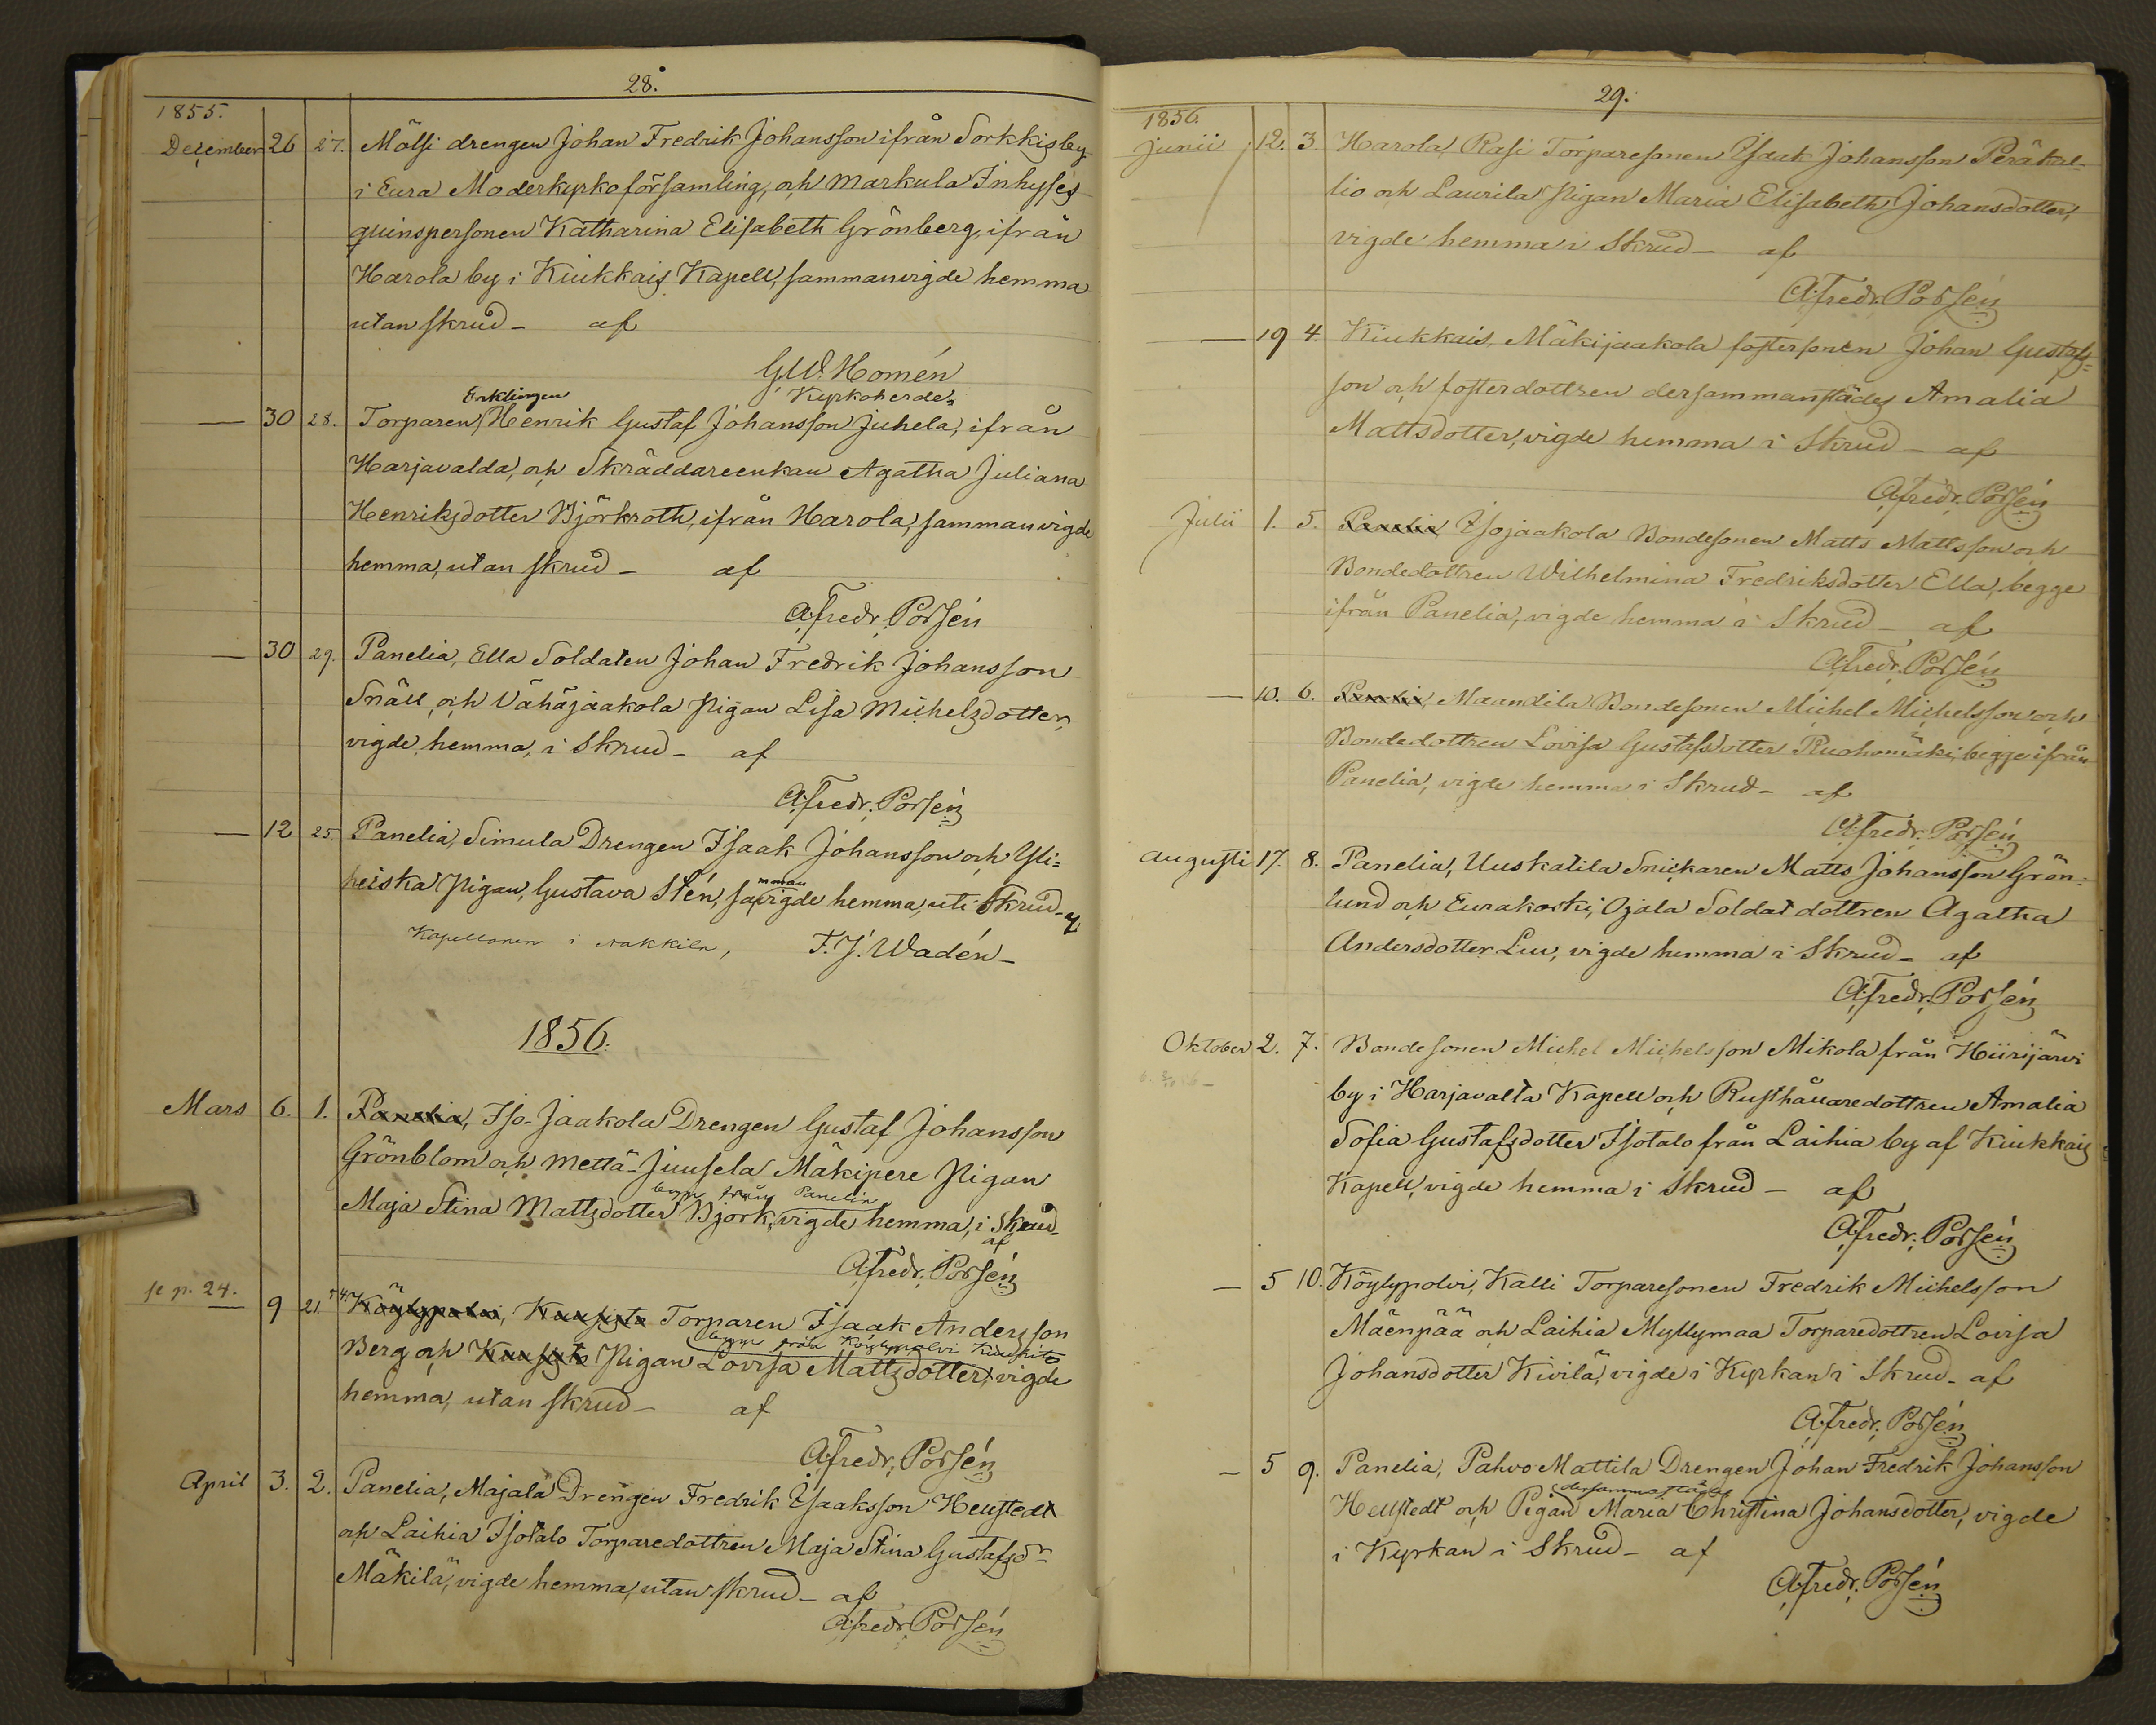 28.
1855.
December 26 27. Mölsi drengen Johan Fredrik Johansson ifrån Sorkkis by
i Eura Moderkyrkoförsamling, och Markula Inhyses
quinspersonen Katharina Elisabeth Grönberg, ifrån
Harola by i Kiukkais Kapell, sammanvigde hemma
utan skrud - af
G.W. Homén
Kyrkoherde
Enklingen
— 30 28. Torparen Henrik Gustaf Johansson Juhela, ifrån
Harjavalda, och Skräddareenkan Agatha Juliana
Henriksdotter Björkroth, ifrån Harola, sammanvigde
hemma, utan skrud - af
A. Fredr. Porsén
— 30 29. Panelia, Ella Soldaten Johan Fredrik Johansson
Snäll, och Vähäjaakola Pigan Lisa Michelsdotter,
vigde hemma, i Skrud - af
A. Fredr. Porsén
— 12 25. Panelia, Simula Drengen Isaak Johansson och Yli-
mman
heiska Pigan, Gustava Stén, savigde hemma, uti Skrud - af
Kapellanen i Nakkila, F. J. Wadén -
1856.
Mars 6. 1. Panelia, Iso-Jaakola Drengen Gustaf Johansson
Grönblom och Mettä-Juusela Mäkipere Pigan
begge från Panelia
Maja Stina Mattsdotter Björk, vigde hemma, i Skrud -
af
A. Fredr. Porsén
se p. 24. 9 21. Köylypolvi, Torparen Isaak Andersson
begge från Köylypolvi
Berg och Pigan Lovisa Mattsdotter, vigde
hemma, utan skrud - af
A. Fredr. Porsén
April 3. 2. Panelia, Majala Drengen Fredrik Isaaksson Hellstedt
och Laihia Isotalo Torparedottren Maja Stina Gustafsdr
Mäkilä, vigde hemma, utan skrud - af
A. Fredr. Porsén
29.
1856
Junii 12. 3. Harola, Rasi Torparesonen Isaak Johansson Peräkal-
lio och Laurila Pigan Maria Elisabeth Johansdotter,
vigde hemma i Skrud - af
A. Fredr. Porsén
— 19 4. Kiukkais, Mäkijaakola fostersonen Johan Gustafs-
son och fosterdottren dersammanstädes Amalia
Mattsdotter, vigde hemma i Skrud - af
A. Fredr. Porsén
Julii 1. 5. Panelia, Isojaakola Bondesonen Matts Mattsson och
Bondedottren Wilhelmina Fredriksdotter Ella, begge
ifrån Panelia, vigde hemma i Skrud - af
A. Fredr. Porsén
— 10. 6. Panelia, Maundila Bondesonen Michel Michelsson och
Bondedottren Lovisa Gustafsdotter Ruohomäki, begge ifrån
Panelia, vigde hemma i Skrud - af
A. Fredr. Porsén
Augusti 17. 8. Panelia, Uuskatila Snickaren Matts Johansson Grön-
lund och Eurakoski, Ojala Soldat dottren Agatha
Andersdotter Luu, vigde hemma i Skrud - af
A. Fredr. Porsén
Oktober 2. 7. Bondesonen Michel Michelsson Mikola från Hiirijärvi
by i Harjavalta Kapell och Rusthållaredottren Amalia
Sofia Gustafsdotter Isotalo från Laihia by af Kiukkais
Kapell, vigde hemma i Skrud - af
A. Fredr. Porsén
— 5 10. Köylypolvi, Kalli Torparesonen Fredrik Michelsson
Mäenpää och Laihia Myllymaa Torparedottren Lovisa
Johansdotter Kivilä, vigde i Kyrkan i Skrud - af
A. Fredr. Porsén
— 5 9. Panelia, Pahvo-Mattila Drengen Johan Fredrik Johansson
dersammastädes
Hellstedt och Pigan Maria Christina Johansdotter, vigde
i Kyrkan i Skrud - af
A. Fredr. Porsén